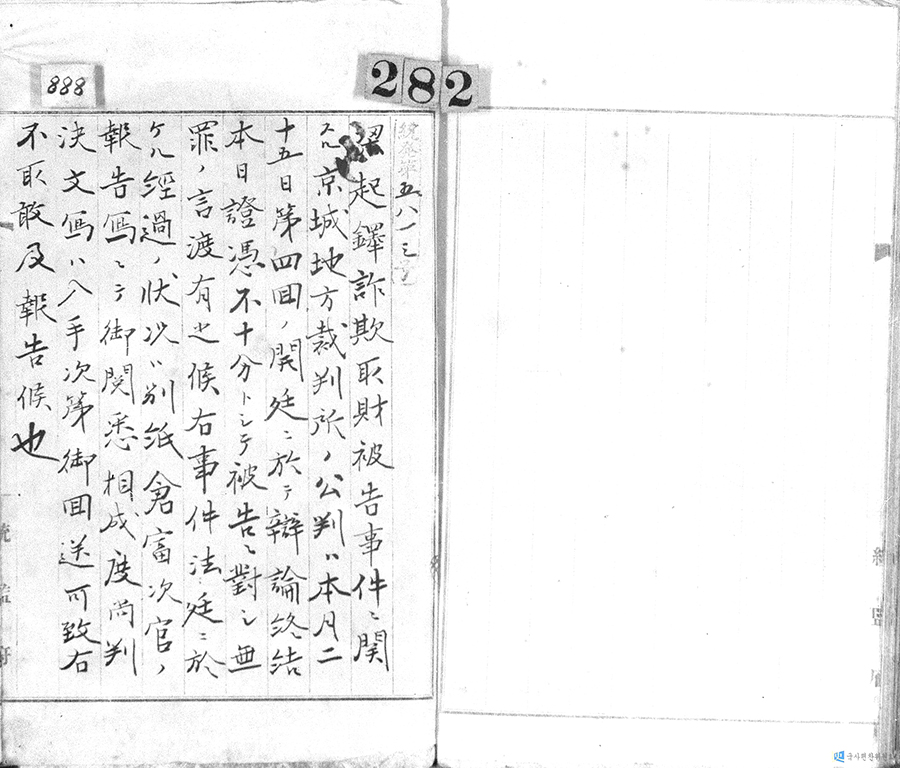 888
282
統發第五八一三号
梁起鐸詐欺取財被告事件ニ関
スル京城地方裁判所ノ公判ハ本月二
十五日第四回ノ開廷ニ於テ辯論終結
本日證憑不十分トシテ被告ニ對シ無
罪ノ言渡有之候右事件法廷ニ於
ケル經過ノ状况ハ別紙倉富次官ノ
報告寫ニテ御閲悉相成度尚判
決文寫ハ入手次第御回送可致右
不取敢及報告候也
統監府
統監府
국사편찬위원회